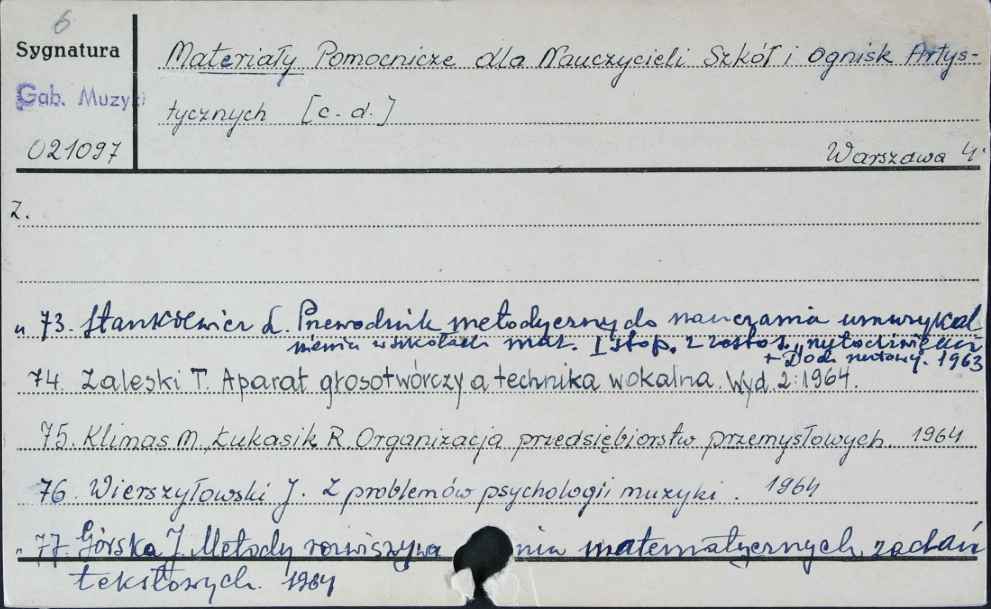 6
Sygnatura
Materiały Pomocnicze dla Nauczycieli Szkół i Ognisk Artys-
Gab. Muzyki
tycznych [c. d.]
021097
Warszawa 4°
Z.
n. 73. Stankiewicz L. Przewodnik metodyczny do nauczania umuzykal
nienia w szkołach muz. I stop. z zastos.
+ Dod. nutowy. 1963
74. Zaleski T. Aparat głosotwórczy a technika wokalna. Wyd. 2: 1964.
75. Klimas M., Łukasik R. Organizacja przedsiębiorstw przemysłowych. 1964
76. Wierszyłowski J. Z problemów psychologii muzyki. 1964
77. Górska J. Metody rozwiązywa nia matematycznych zadań
tekstowych. 1964